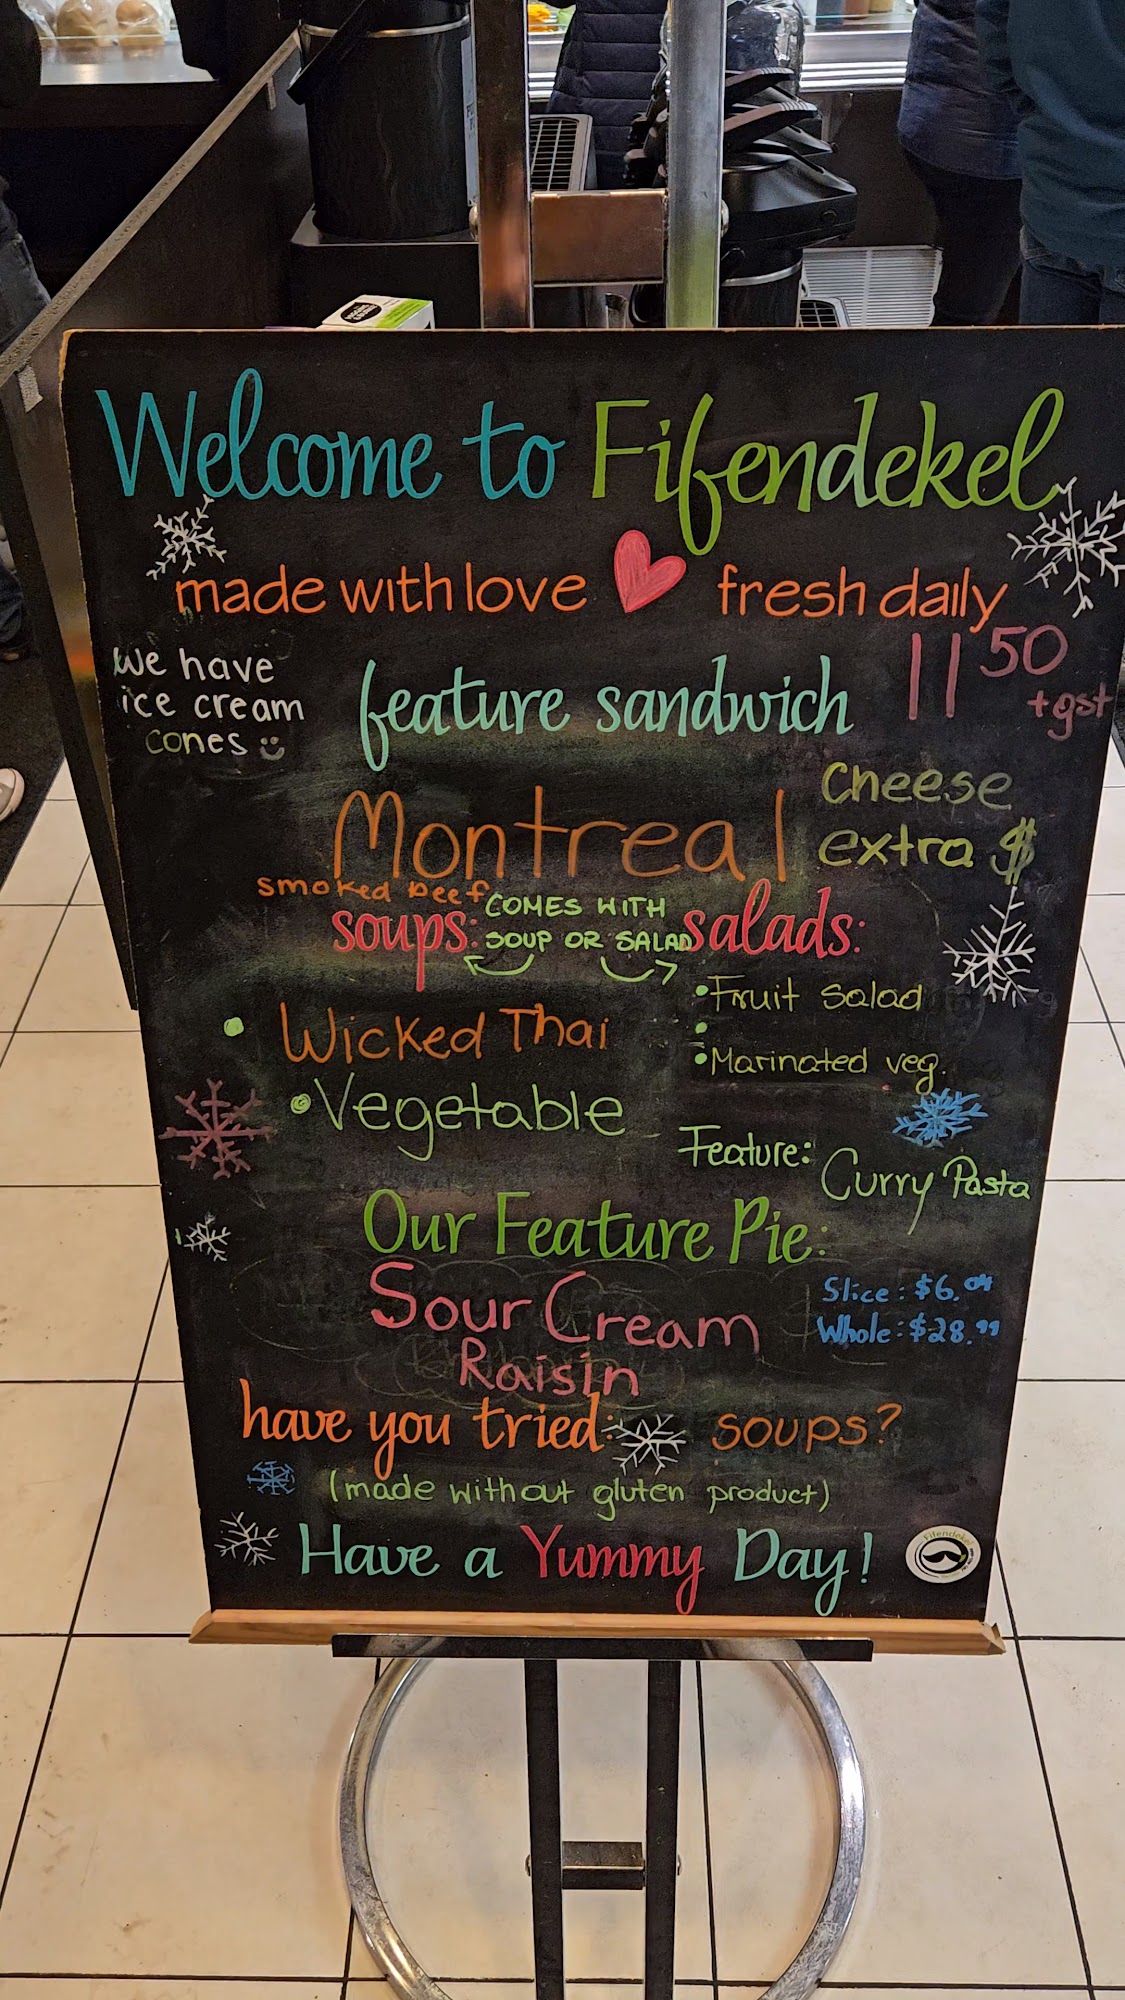 Welcome to Fifendekel
made with love fresh daily
We have
ice cream
cones
feature sandwich
11 50
+gst
Montreal
smoked beef
Cheese
extra $
soups:
COMES WITH
SOUP OR SALAD
salads:
• Wicked Thai
• Vegetable
• Fruit Salad
•
• Marinated veg.
Feature: Curry Pasta
Our Feature Pie:
Sour Cream
Raisin
Slice: $6.04
Whole: $28.99
have you tried: soups?
(made without gluten product)
Have a Yummy Day!
Fifendekel